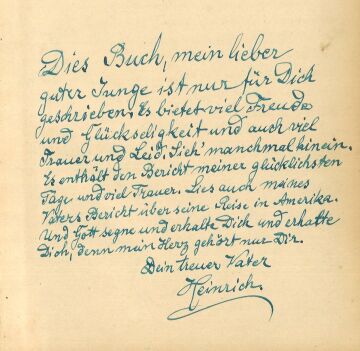 Dies Buch, mein lieber
guter Junge ist nur für Dich
geschrieben. Es bietet viel Freude
und Glückseligkeit und auch viel
Trauer und Leid. Sieh' manchmal hinein.
Es enthält den Bericht meiner glücklichsten
Tage und viel Trauer. Lies auch meines
Vaters Bericht über seine Reise in Amerika.
Und Gott segne und erhalte Dich und erhalte
Dich, denn mein Herz gehört nur Dir.
Dein treuer Vater
Heinrich.